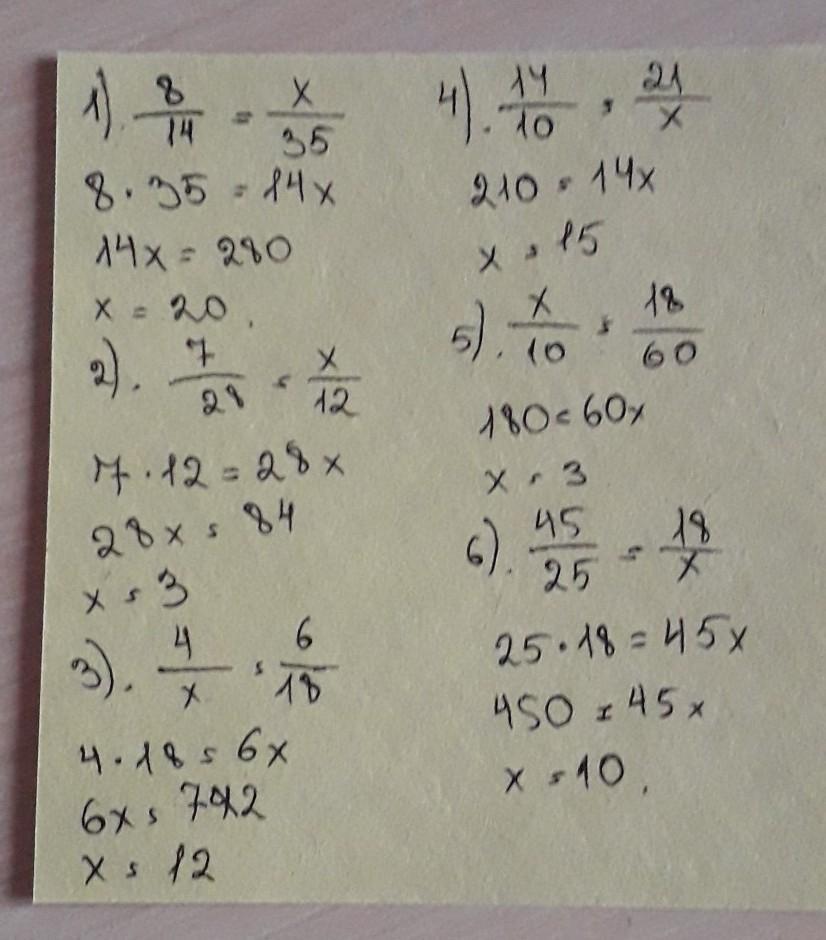 1). 8/14 = x/35
8 · 35 = 14x
14x = 280
x = 20.
2). 7/28 = x/12
7 · 12 = 28x
28x = 84
x = 3
3). 4/x = 6/18
4 · 18 = 6x
6x = 72
x = 12
4). 14/10 = 21/x
210 = 14x
x = 15
5). x/10 = 18/60
180 = 60x
x = 3
6). 45/25 = 18/x
25 · 18 = 45x
450 = 45x
x = 10.